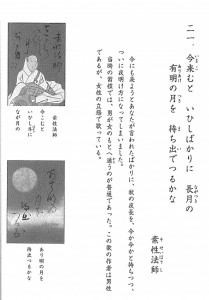 二一. 今来むと いひしばかりに 長月の
有明の月を 待ち出でつるかな
素性法師
そせいほうし
今にも来ようとあなたが言われたばかりに、秋の夜長を、今か今かと待ちつつ、
ついに夜明け方になってしまいました。
当時の習慣では、男が女のもとへ通うのが普通であった。この歌の作者は男性
であるが、女性の立場で歌っている。
素性法師
今こむと
いひし者に
なが月の
あり明の月を
待出つるかな